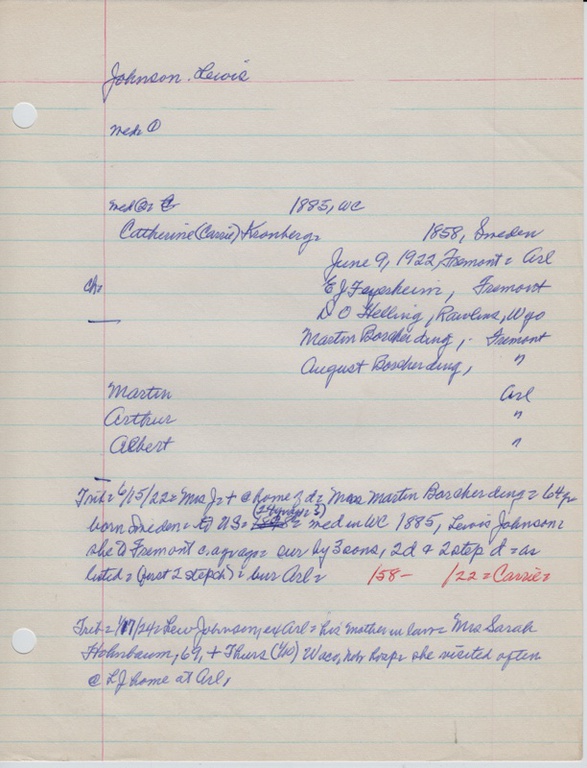 Johnson, Lewis
med ①
med ② 1885, WC
Catherine (Carrie) Kronberg = 1858, Sweden
June 9, 1922, Fremont = Arl
Ch = E J Feyersheim, Fremont
D O Helling, Rawlins, Wyo
Martin Borcherding, Fremont
August Borcherding, "
Martin Arl
Arthur "
Albert "
Trib = 6/15/22 = Mrs J = + @ home of d = Mrs Martin Borcherding = 64 yr
born Sweden = US = med in WC 1885, Lewis Johnson =
she to Fremont = sur by 3 sons, 2 d & 2 step d = as
listed = (first 2 step ch) = bur Arl = /58- /22 = Carrie =
Trib = /24 = Lew Johnson, ex Arl = his mother in law = Mrs Sarah
69, + Thurs Waco, hosp = she visited often
@ LJ home at Arl,